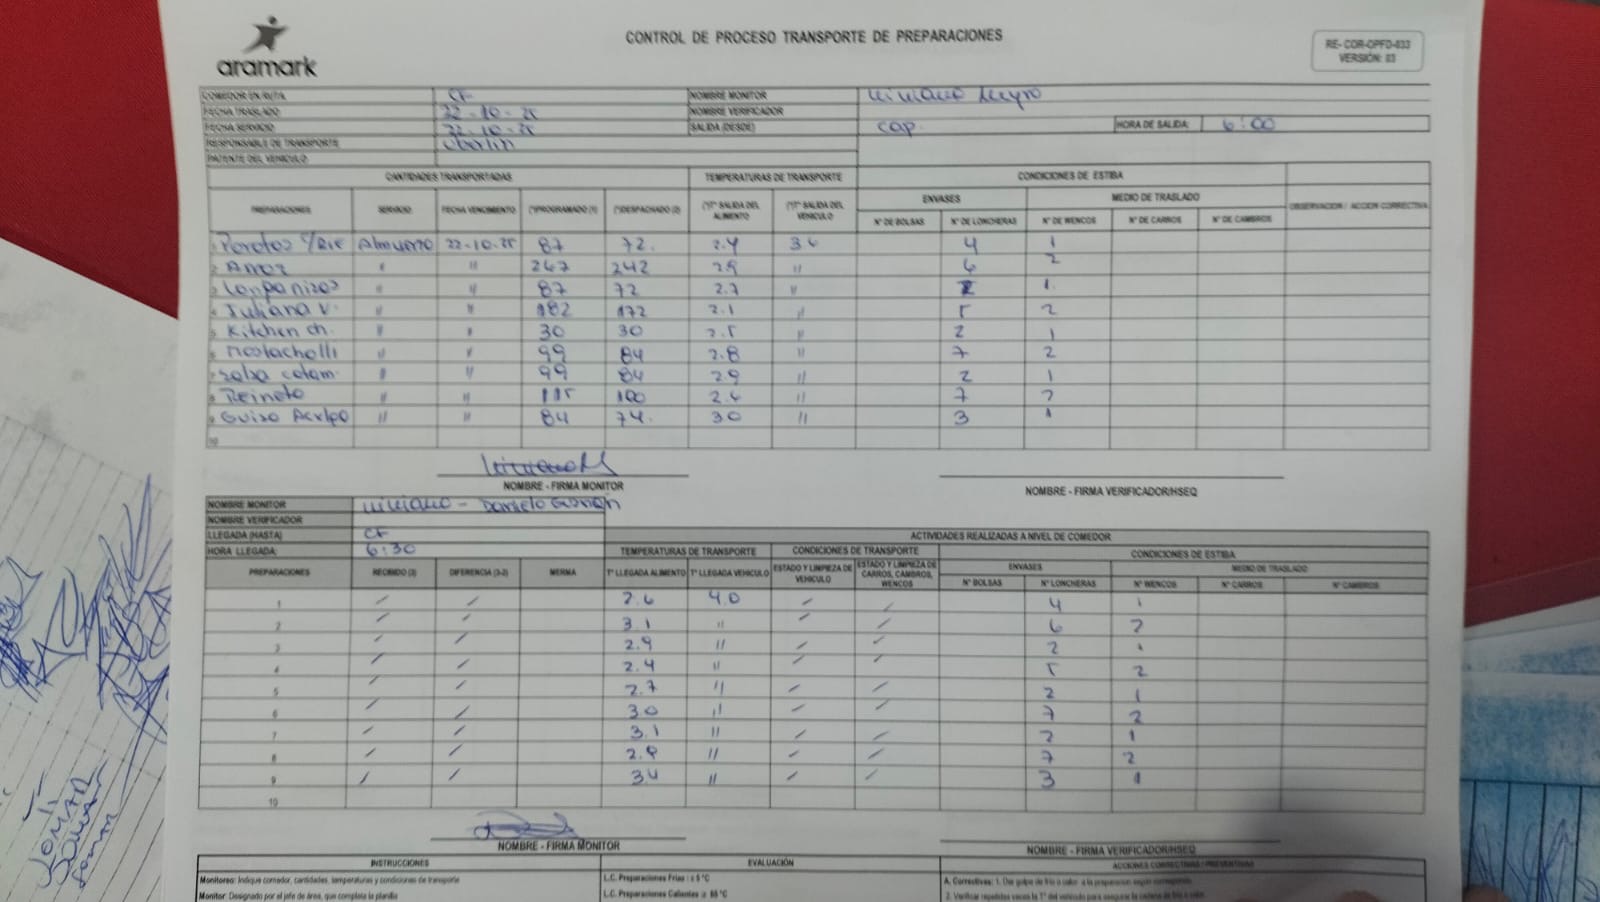 aramark
CONTROL DE PROCESO TRANSPORTE DE PREPARACIONES
RE- COR-OPFD-033
VERSIÓN: 03
COMEDOR EN RUTA CF NOMBRE MONITOR
FECHA TRASLADO 22-10-25 NOMBRE VERIFICADOR
FECHA SERVICIO 22-10-25 SALIDA (DESDE) cap. HORA DE SALIDA: 6:00
RESPONSABLE DE TRANSPORTE Oberlin
PATENTE DEL VEHICULO
CANTIDADES TRANSPORTADAS TEMPERATURAS DE TRANSPORTE CONDICIONES DE ESTIBA
ENVASES MEDIO DE TRASLADO
PREPARACIONES SERVICIO FECHA VENCIMIENTO (*)PROGRAMADO (1) (*)DESPACHADO (2) (*)Tº SALIDA DEL ALIMENTO (*)Tº SALIDA DEL VEHICULO Nº DE BOLSAS Nº DE LONCHERAS Nº DE WENCOS Nº DE CARROS Nº DE CAMBROS OBSERVACION / ACCION CORRECTIVA
1 Porotos c/Rie Almuerzo 22-10-25 87 72. 2.4 4 1
2 Arroz " " 267 242 2.9 " 6 2
3 Longanizas " " 87 72 2.7 " 1.
4 Juliana v. " " 182 172 2.1 " 5 2
5 Kitchen ch. " " 30 30 2.5 " 2 1
6 Mostacholli " " 99 84 2.8 " 7 2
7 Salsa " " 99 84 2.9 " 2 1
8 Reineta " " 115 100 2.6 " 7 2
9 Guiso " " 84 74. 3.0 " 3 1
10
NOMBRE - FIRMA MONITOR NOMBRE - FIRMA VERIFICADOR/HSEQ
NOMBRE MONITOR
NOMBRE VERIFICADOR
LLEGADA (HASTA) CF ACTIVIDADES REALIZADAS A NIVEL DE COMEDOR
HORA LLEGADA: 6:30 TEMPERATURAS DE TRANSPORTE CONDICIONES DE TRANSPORTE CONDICIONES DE ESTIBA
ENVASES MEDIO DE TRASLADO
PREPARACIONES RECIBIDO (3) DIFERENCIA (3-2) MERMA Tº LLEGADA ALIMENTO Tº LLEGADA VEHICULO ESTADO Y LIMPIEZA DE VEHICULO ESTADO Y LIMPIEZA DE CARROS, CAMBROS, WENCOS Nº BOLSAS Nº LONCHERAS Nº WENCOS Nº CARROS Nº CAMBROS
1 / / 2.6 4.0 / / 4 1
2 / / 3.1 " / / 6 2
3 / / 2.9 " / / 2 1
4 / / 2.4 " / / 5 2
5 / / 2.7 " / / 2 1
6 / / 3.0 " / / 7 2
7 / / 3.1 " / / 2 1
8 / / " / / 7 2
9 / / 3.4 " / / 3 1
10
NOMBRE - FIRMA MONITOR NOMBRE - FIRMA VERIFICADOR/HSEQ
INSTRUCCIONES EVALUACIÓN ACCIONES CORRECTIVAS / PREVENTIVAS
Monitoreo: Indique comedor, cantidades, temperaturas y condiciones de transporte L.C. Preparaciones Frias : ≤ 5 ºC A. Correctivas: 1. Dar golpe de frío o calor a la preparacion según corresponda
Monitor: Designado por el jefe de área, que completa la planilla L.C. Preparaciones Calientes : ≥ 65 ºC